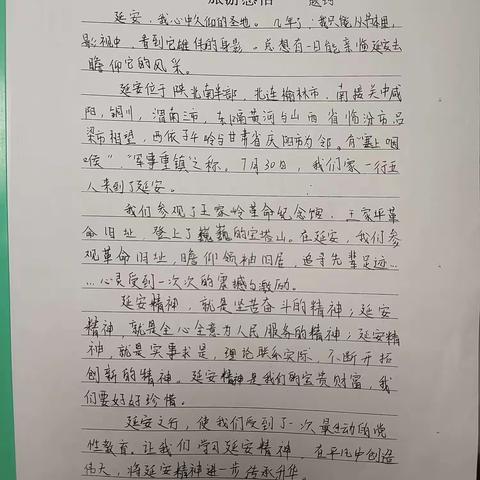 旅游感悟
延安，我心中久仰的圣地。几年了，我只能从书本里，
影视中，看到它雄伟的身影。总想有一日能亲临延安去
瞻仰它的风采。
延安位于陕北南半部，北连榆林市，南接关中咸
阳，铜川，渭南三市，东隔黄河与山西省临汾市吕
梁市相望，西依子午岭与甘肃省庆阳市为邻。有“塞上咽
喉”，“军事重镇”之称。7月30日，我们家一行五
人来到了延安。
我们参观了王家岭革命纪念馆，王家坪革
命旧址，登上了巍巍的宝塔山。在延安，我们参
观革命旧址，瞻仰领袖旧居，追寻先辈足迹……
……心灵受到一次次的震撼与激励。
延安精神，就是坚苦奋斗的精神；延安
精神，就是全心全意为人民服务的精神；延安精
神，就是实事求是，理论联系实际，不断开拓
创新的精神。延安精神是我们的宝贵财富，我
们要好好珍惜。
延安之行，使我们受到了一次最生动的党
性教育。让我们学习延安精神，在平凡中创造
伟大，将延安精神进一步传承升华。